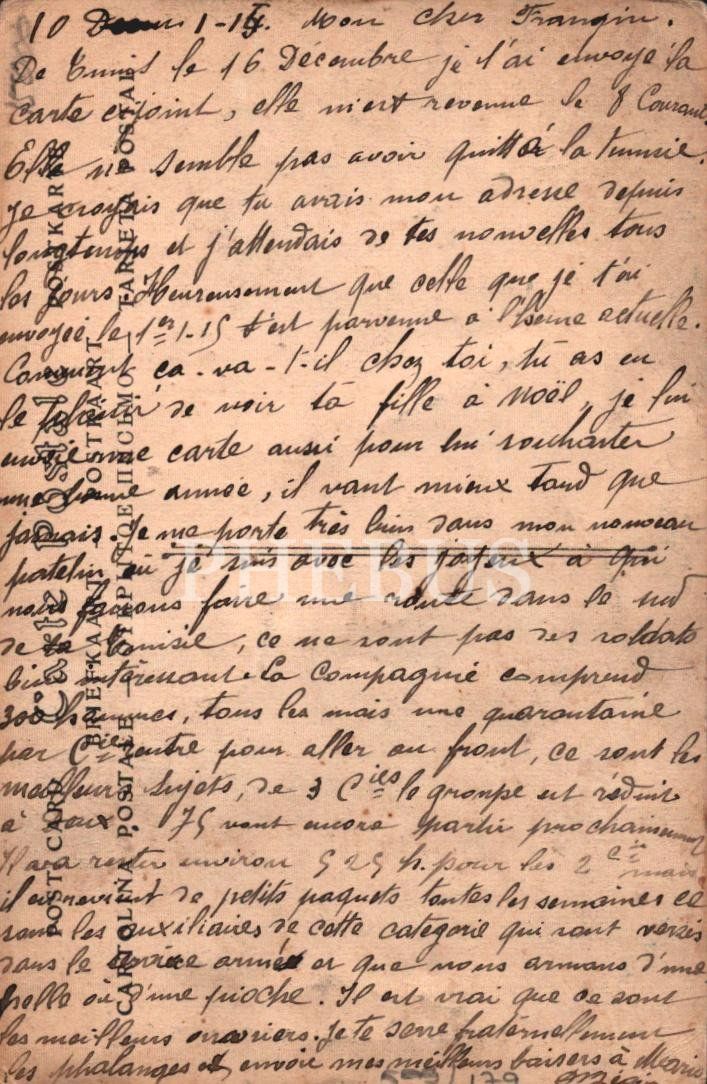 10 1-15. Mon cher Frangin.
De Tunis le 16 Décembre je t'ai envoyé la
carte cijoint, elle m'est revenue le 8 Courant.
Elle ne semble pas avoir quitté la Tunisie.
Je croyais que tu avais mon adresse depuis
longtemps et j'attendais de tes nouvelles tous
les jours. Heureusement que celle que je t'ai
envoyée le 1er 1-15 t'est parvenue à l'heure actuelle.
Comment ça-va-t-il chez toi, tu as eu
le plaisir de voir ta fille à Noël, je lui
envoie une carte aussi pour lui souhaiter
une bonne année, il vaut mieux tard que
jamais. Je me porte très bien dans mon nouveau
patelin où je suis avec les joyeux à qui
nous faisons faire une route dans le sud
de la Tunisie, ce ne sont pas des soldats
bien intéressant. La Compagnie comprend
300 hommes, tous les mois une quarantaine
par Cie rentre pour aller au front, ce sont les
meilleurs sujets, de 3 Cies le groupe est réduit
à deux. 75 vont encore partir prochainement
Il va rester environ 525 h. pour les 2 Cie mais
il en revient de petits paquets toutes les semaines ce
sont les auxiliaires de cette catégorie qui sont versés
dans le service armée et que nous armons d'une
pelle ou d'une pioche. Il est vrai que ce sont
les meilleurs ouvriers. Je te serre fraternellement
les phalanges et envoie mes meilleurs baisers à Marie
Carte Postale POSTKARTE
POST CARD
BRIEFKAART POSTKAART
CARTOLINA POSTALE TARJETA POSTAL
PHEBUS